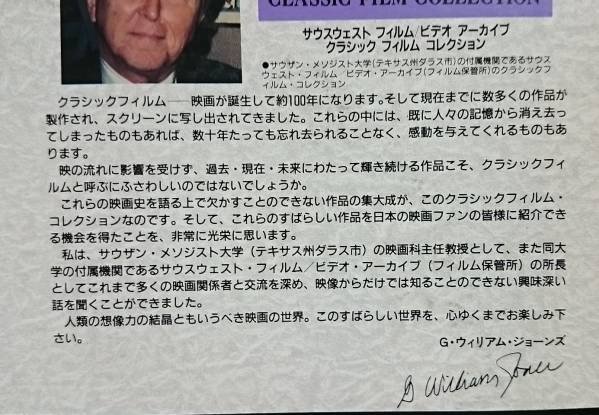 CLASSIC FILM COLLECTION
サウスウェスト フィルム/ビデオ アーカイブ
クラシック フィルム コレクション
●サウザン・メソジスト大学(テキサス州ダラス市)の付属機関であるサウス
ウェスト・フィルム/ビデオ・アーカイブ(フィルム保管所)のクラシックフ
ィルム・コレクション
クラシックフィルム——映画が誕生して約100年になります。そして現在までに数多くの作品が
製作され、スクリーンに写し出されてきました。これらの中には、既に人々の記憶から消え去っ
てしまったものもあれば、数十年たっても忘れ去られることなく、感動を与えてくれるものもあ
ります。
映の流れに影響を受けず、過去・現在・未来にわたって輝き続ける作品こそ、クラシックフィ
ルムと呼ぶにふさわしいのではないでしょうか。
これらの映画史を語る上で欠かすことのできない作品の集大成が、このクラシックフィルム・
コレクションなのです。そして、これらのすばらしい作品を日本の映画ファンの皆様に紹介でき
る機会を得たことを、非常に光栄に思います。
私は、サウザン・メソジスト大学(テキサス州ダラス市)の映画科主任教授として、また同大
学の付属機関であるサウスウェスト・フィルム/ビデオ・アーカイブ(フィルム保管所)の所長
としてこれまで多くの映画関係者と交流を深め、映像からだけでは知ることのできない興味深い
話を聞くことができました。
人類の想像力の結晶ともいうべき映画の世界。このすばらしい世界を、心ゆくまでお楽しみ下
さい。
G・ウィリアム・ジョーンズ
G William Jones